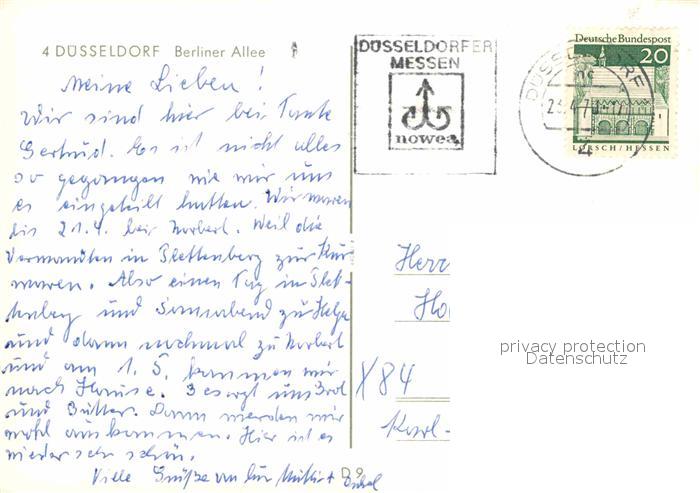 4 DÜSSELDORF Berliner Allee
DÜSSELDORFER
MESSEN
nowea
Deutsche Bundespost
20
LORSCH/HESSEN
DÜSSELDORF
4
Meine Lieben!
Wir sind hier bei Tante
Gertrud. Es ist nicht alles
so gegangen wie wir uns
es eingeteilt hatten. Wir waren
bis 21.4. bei Norbert. Weil die
Verwandten in Plettenberg zur Kur
waren. Also einen Tag in Plet-
tenberg und Sonnabend zu Helga
und dann nochmal zu Norbert
und am 1.5. kommen wir
nach Hause. Besorgt uns Brot
und Butter. Dann werden wir
wohl auskommen. Hier ist es
wieder sehr schön.
Viele Grüße von
Herr
Ho
X84
Karl-
D 9
privacy protection
Datenschutz